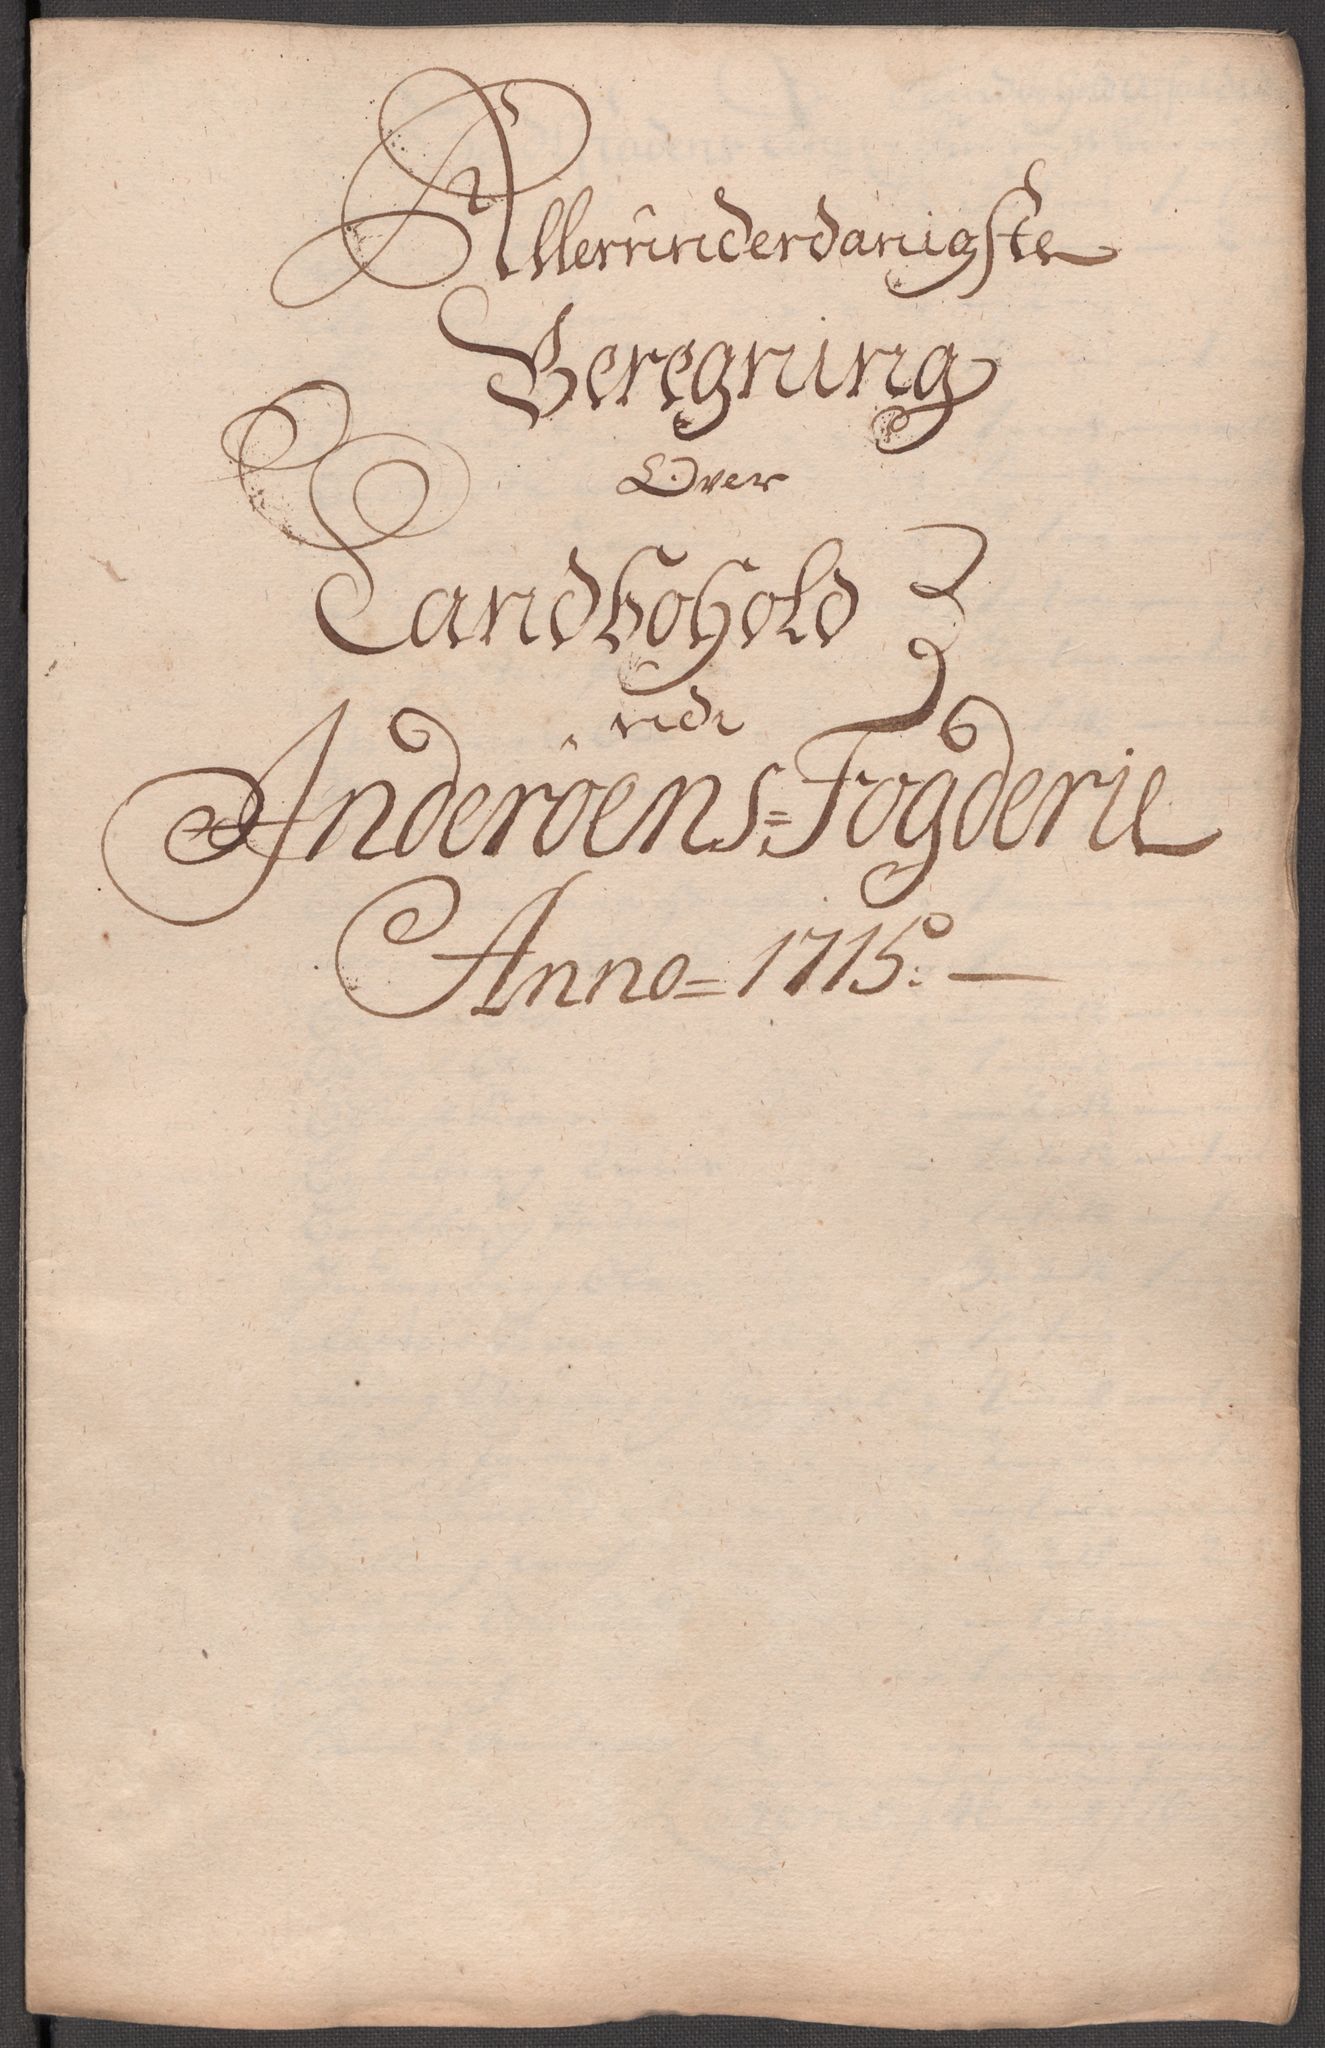 Allerunderdanigste
Beregning
Over
Landbohold
udi
Inderöens=Fogderie
Anno=1715.